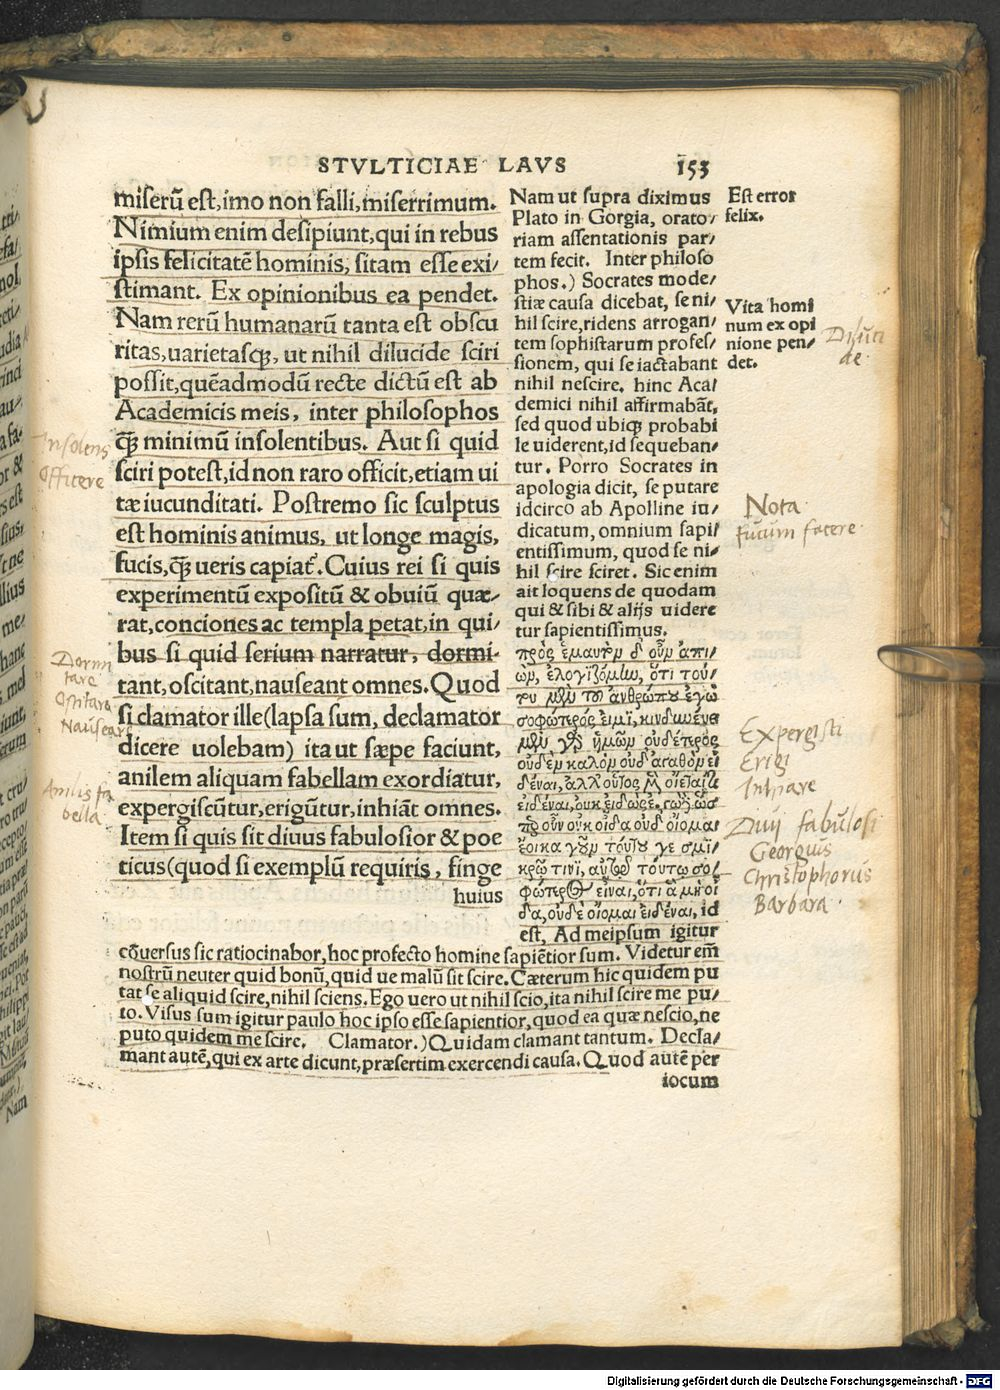 STVLTICIAE LAVS 153
miserū est, imo non falli, miserrimum.
Nimium enim desipiunt, qui in rebus
ipsis felicitatē hominis, sitam esse exi/
stimant. Ex opinionibus ea pendet.
Nam rerū humanarū tanta est obscu
ritas, uarietasq;, ut nihil dilucide sciri
possit, quēadmodū recte dictū est ab
Academicis meis, inter philosophos
q̄; minimū insolentibus. Aut si quid
sciri potest, id non raro officit, etiam ui
tæ iucunditati. Postremo sic sculptus
est hominis animus, ut longe magis,
fucis, q̄; ueris capiat᷑. Cuius rei si quis
experimentū expositū & obuiū quæ-
rat, conciones ac templa petat, in qui/
bus si quid serium narratur, dormi-
tant, oscitant, nauseant omnes. Quod
si clamator ille (lapsa sum, declamator
dicere uolebam) ita ut sæpe faciunt,
anilem aliquam fabellam exordiatur,
expergiscūtur, erigūtur, inhiāt omnes.
Item si quis sit diuus fabulosior & poe
ticus (quod si exemplū requiris, finge
huius
Nam ut supra diximus
Plato in Gorgia, orato/
riam assentationis par/
tem fecit. Inter philoso
phos.) Socrates mode/
stiæ causa dicebat, se ni/
hil scire, ridens arrogan/
tem sophistarum profes/
sionem, qui se iactabant
nihil nescire. hinc Aca/
demici nihil affirmabāt,
sed quod ubiq; probabi
le uiderent, id sequeban/
tur. Porro Socrates in
apologia dicit, se putare
idcirco ab Apolline iu/
dicatum, omnium sapi/
entissimum, quod se ni/
hil scire sciret. Sic enim
ait loquens de quodam
qui & sibi & alijs uidere
tur sapientissimus.
πρὸς ἐμαυτὸν δ᾽ οὖν ἀπι/
ὼν, ἐλογιζόμην, ὅτι τού/
του μὲν τοῦ ἀνθρώπου ἐγὼ
σοφώτερός εἰμί, κινδυνεύει
μὲν γὰρ ἡμῶν οὐδέτερος
οὐδὲν καλὸν οὐδ᾽ ἀγαθὸν εἰ
δέναι, ἀλλ᾽ οὗτος μὲν οἴεταί τι
εἰδέναι, οὐκ εἰδώς
οὖν οὐκ οἶδα οὐδ᾽ οἴομαι
ἔοικα γοῦν τούτου γε σμι/
κρῷ τινὶ, αὐτῷ τούτῳ σο/
φώτερος εἶναι, ὅτι ἃ μὴ οἶ
δα, οὐδὲ οἴομαι εἰδέναι, id
est, Ad meipsum igitur
cōuersus sic ratiocinabor, hoc profecto homine sapiētior sum. Videtur em̄
nostrū neuter quid bonū, quid ue malū sit scire. Cæterum hic quidem pu
tat se aliquid scire, nihil sciens. Ego uero ut nihil scio, ita nihil scire me pu/
to. Visus sum igitur paulo hoc ipso esse sapientior, quod ea quæ nescio, ne
puto quidem me scire. Clamator.) Quidam clamant tantum. Decla/
mant autē, qui ex arte dicunt, præsertim exercendi causa. Quod autē per
iocum
Est error
felix.
Vita homi
num ex opi
nione pen/
det.
Diluci
de
Insolens
Officere
Nota
fucum facere
Dormi
tare
Oscitare
Nauseare
Anilis fa
bella
Expergisci
Erigi
Inhiare
Diuij fabulosi
Georgius
Christophorus
Barbara
Digitalisierung gefördert durch die Deutsche Forschungsgemeinschaft - DFG